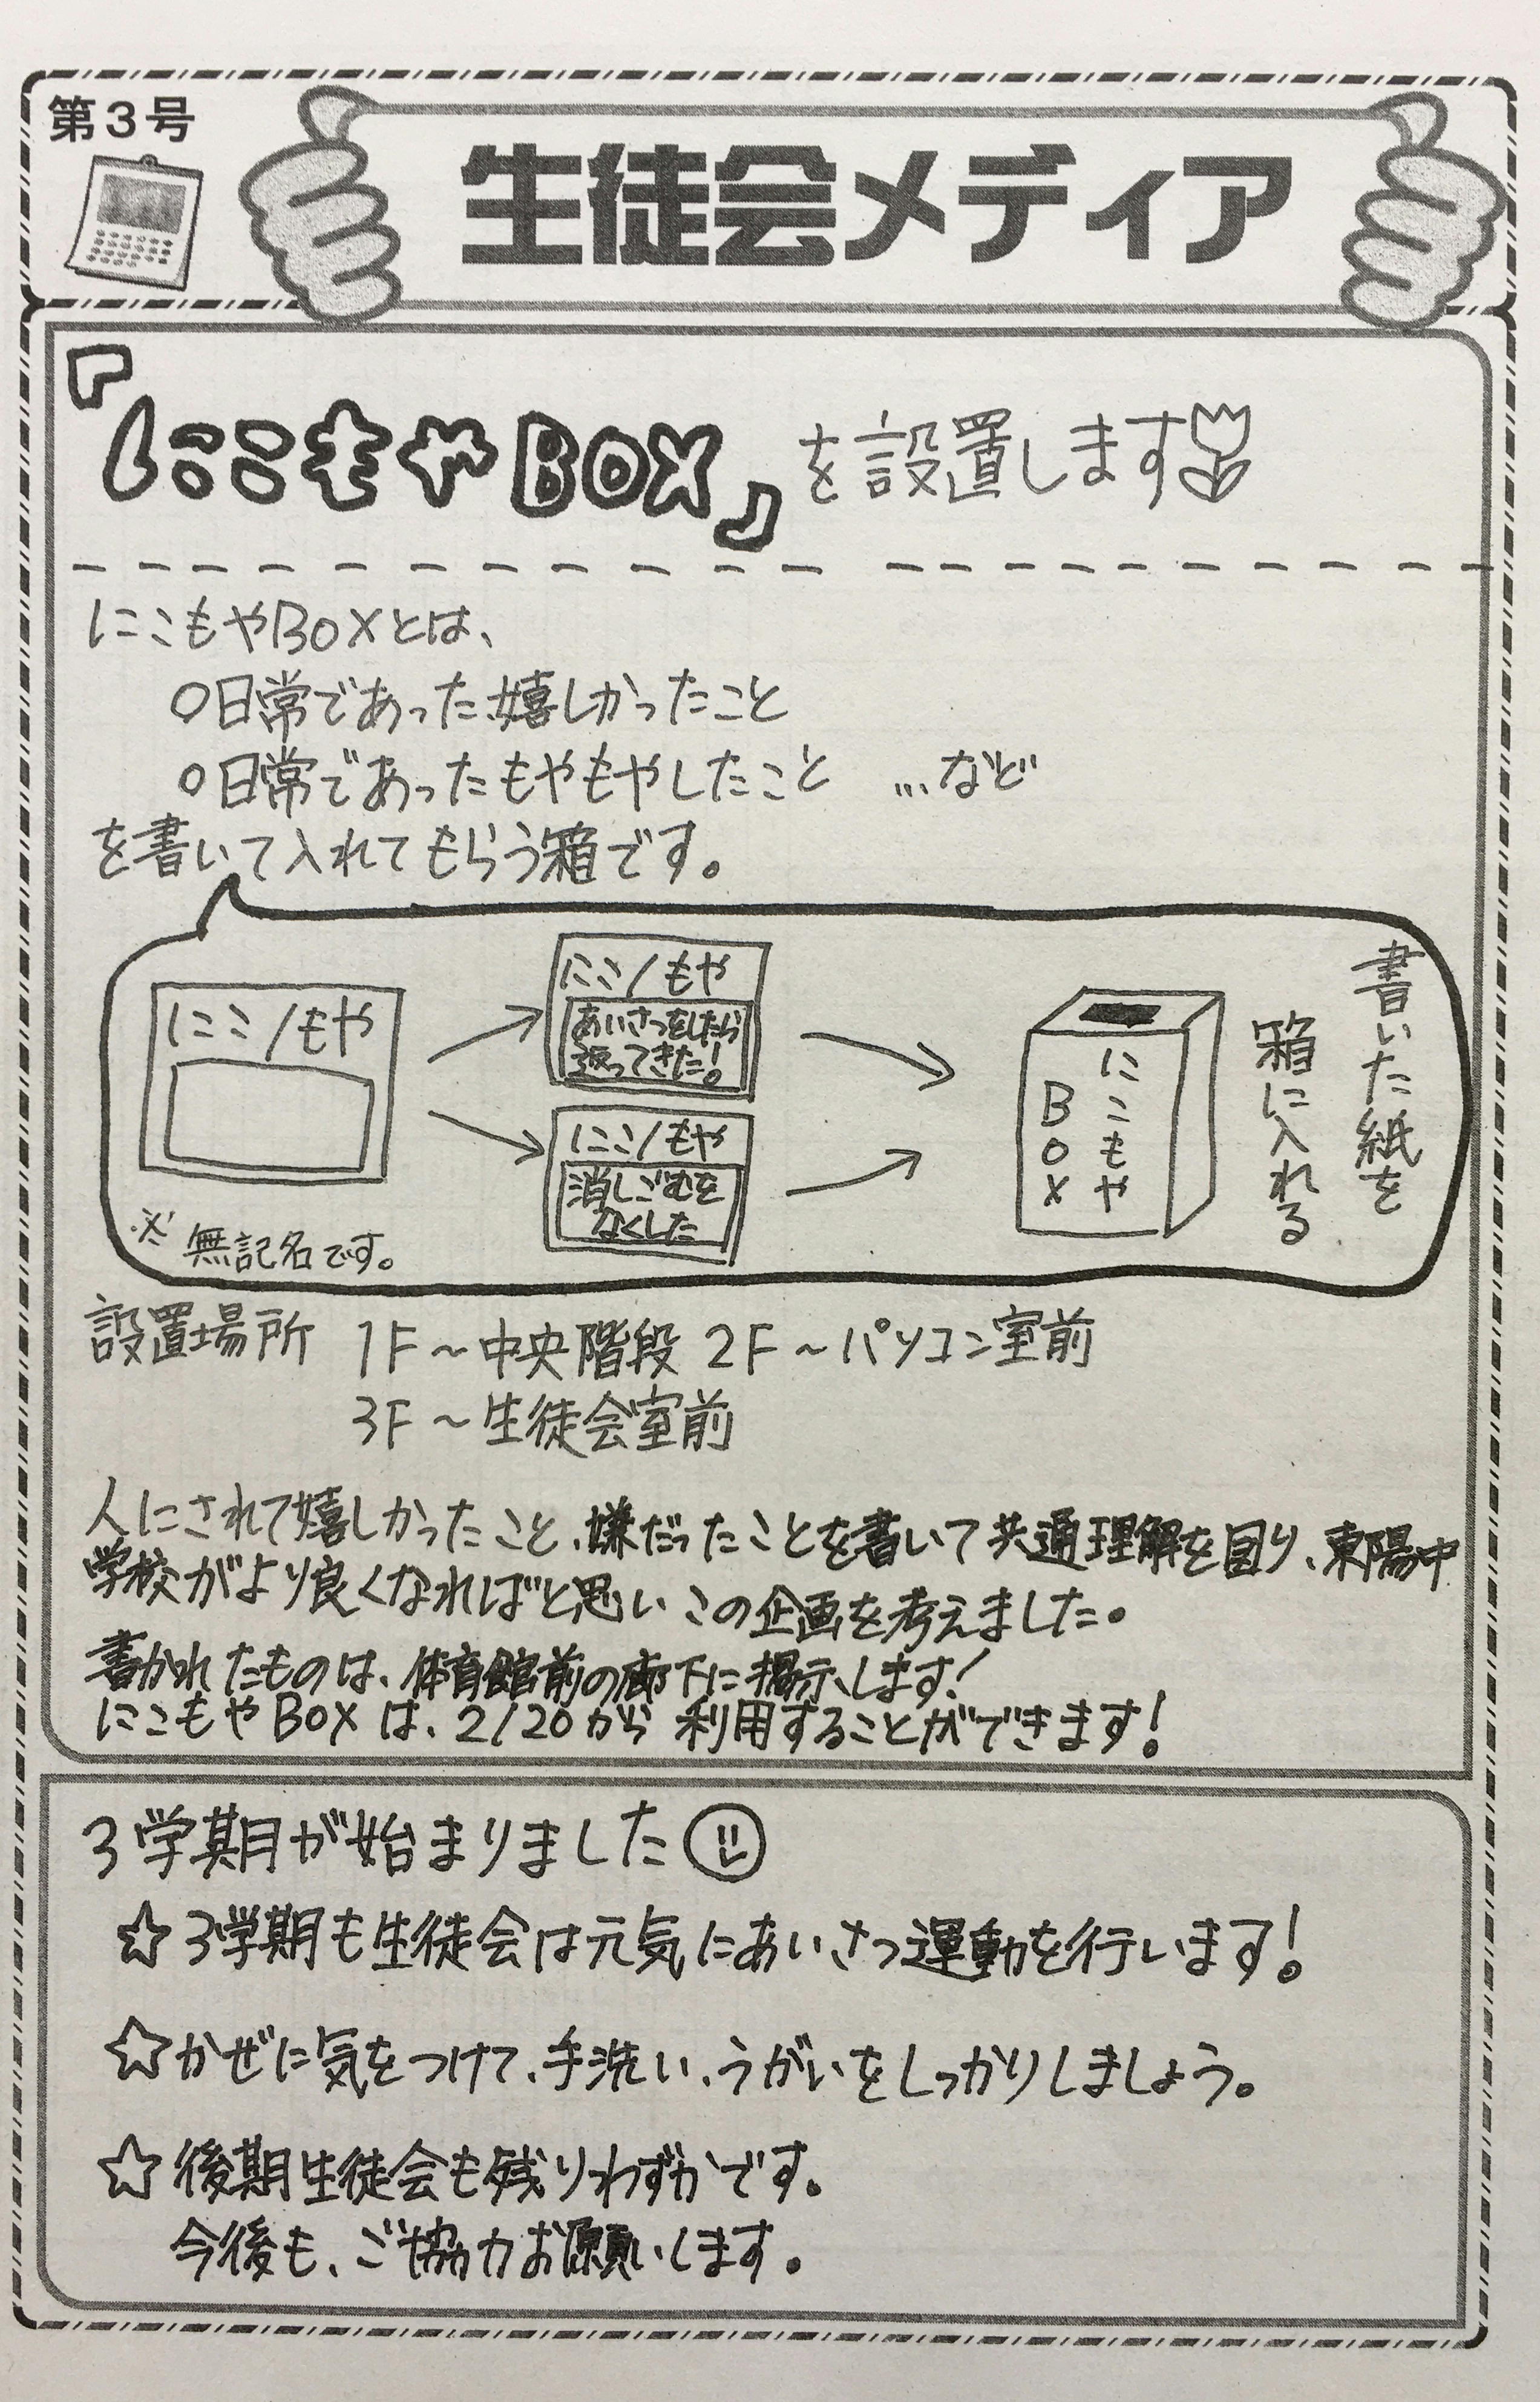 第3号
生徒会メディア
『にこもやBOX』を設置します
にこもやBOXとは、
○日常であった嬉しかったこと
○日常であったもやもやしたこと …など
を書いて入れてもらう箱です。
にこ/もや
※無記名です。
にこ/もや
あいさつをしたら
返ってきた!
にこ/もや
消しごむを
なくした
にこもや
BOX
書いた紙を
箱に入れる
設置場所 1F~中央階段 2F~パソコン室前
3F~生徒会室前
人にされて嬉しかったこと、嫌だったことを書いて共通理解を図り、東陽中
学校がより良くなればと思いこの企画を考えました。
書かれたものは、体育館前の廊下に掲示します!
にこもやBOXは、2/20から利用することができます!
3学期が始まりました
☆3学期も生徒会は元気にあいさつ運動を行います!
☆かぜに気をつけて、手洗い、うがいをしっかりしましょう。
☆後期生徒会も残りわずかです。
今後も、ご協力お願いします。